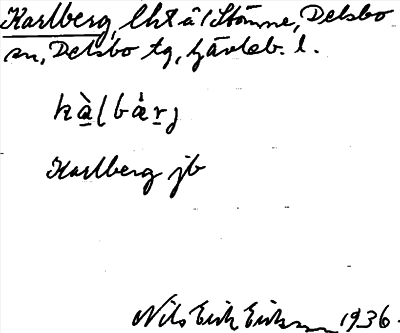 Karlberg, lht å Stömne, Delsbo
sn, Delsbo tg, Gävleb. l.
Karlberg jb
Nils Erik Eriksson 1936.